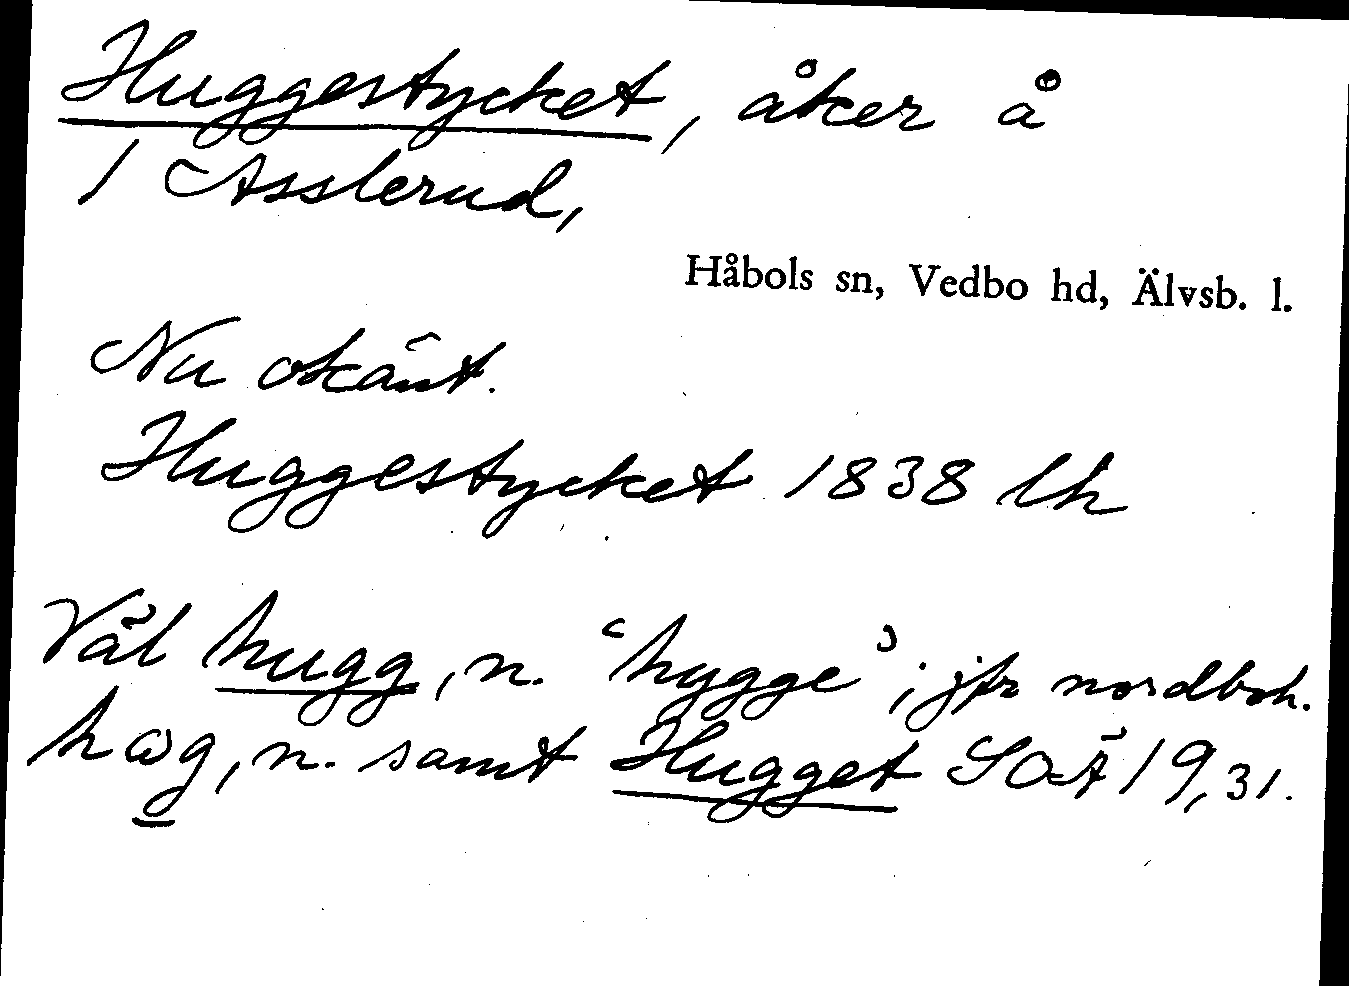 Huggestycket, åker å
1 Asslerud,
Håbols sn, Vedbo hd, Älvsb. l.
Nu okänt.
Huggestycket 1838 lh
Väl hugg, n. "hygge"; jfr nordboh.
hωg, n. samt Hugget SOÄ 19,31.